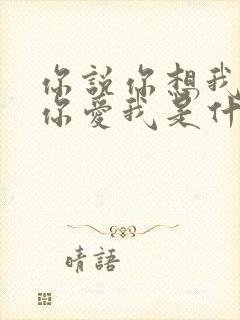 你說你想我
你愛我是什
晴語